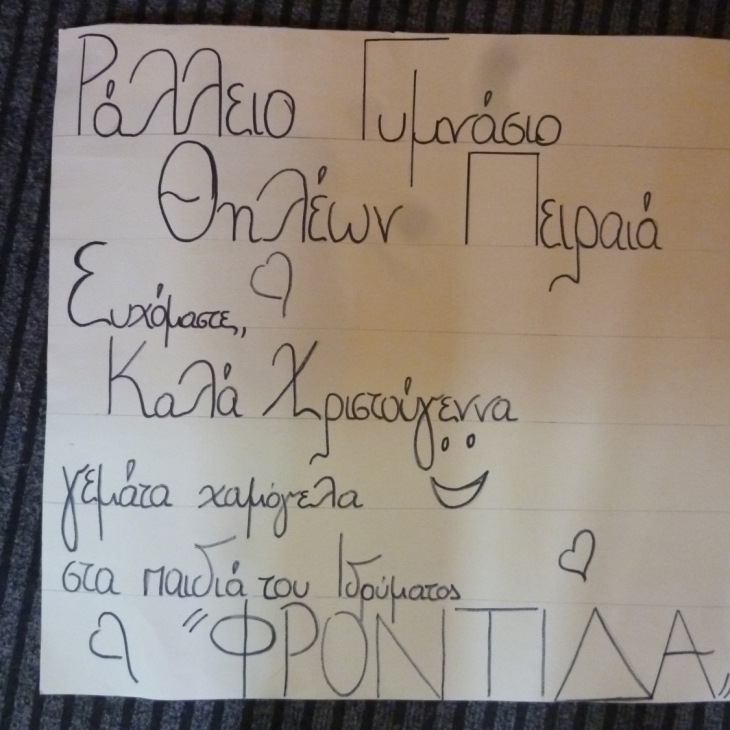 Ράλλειο Γυμνάσιο
Θηλέων Πειραιά
Ευχόμαστε,
Καλά Χριστούγεννα
γεμάτα χαμόγελα
στα παιδιά του Ιδρύματος
"ΦΡΟΝΤΙΔΑ"